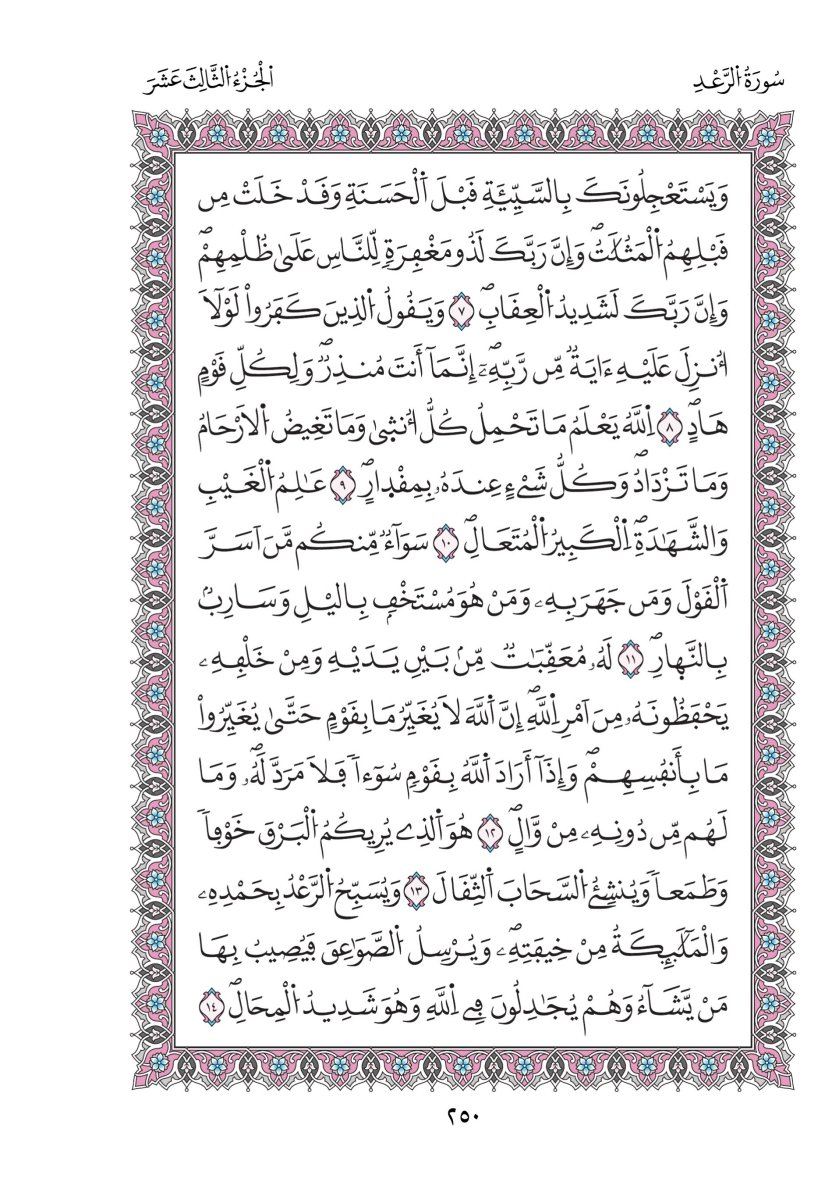 سُورَةُ الرَّعْدِ
الْجُزْءُ الثَّالِثَ عَشَرَ
وَيَسْتَعْجِلُونَكَ بِالسَّيِّئَةِ قَبْلَ اَ۬لْحَسَنَةِ وَقَدْ خَلَتْ مِن
قَبْلِهِمُ اُ۬لْمَثُلَٰتُۖ وَإِنَّ رَبَّكَ لَذُو مَغْفِرَةٖ لِّلنَّاسِ عَلَىٰ ظُلْمِهِمْۖ
وَإِنَّ رَبَّكَ لَشَدِيدُ اُ۬لْعِقَابِۖ ٧ وَيَقُولُ اُ۬لذِينَ كَفَرُواْ لَوْلَآ
أُنزِلَ عَلَيْهِ ءَايَةٞ مِّن رَّبِّهِۦٓۖ إِنَّمَآ أَنتَ مُنذِرٞۖ وَلِكُلِّ قَوْمٍ
هَادٍۖ ٨ اِ۬للَّهُ يَعْلَمُ مَا تَحْمِلُ كُلُّ أُنث۪ىٰ وَمَا تَغِيضُ اُ۬لَارْحَامُ
وَمَا تَزْدَادُۖ وَكُلُّ شَےْءٍ عِندَهُۥ بِمِقْد۪ارٍۖ ٩ عَٰلِمُ اُ۬لْغَيْبِ
وَالشَّهَٰدَةِۖ اِ۬لْكَبِيرُ اُ۬لْمُتَعَالِۖ ١٠ سَوَآءٞ مِّنكُم مَّنَ اَسَرَّ
اَ۬لْقَوْلَ وَمَن جَهَرَ بِهِۦ وَمَنْ هُوَ مُسْتَخْفِۢ بِاليْلِ وَسَارِبُۢ
بِالنَّه۪ارِۖ ١١ لَهُۥ مُعَقِّبَٰتٞ مِّنۢ بَيْنِ يَدَيْهِ وَمِنْ خَلْفِهِۦ
يَحْفَظُونَهُۥ مِنَ اَمْرِ اِ۬للَّهِۖ إِنَّ اَ۬للَّهَ لَا يُغَيِّرُ مَا بِقَوْمٍ حَتَّىٰ يُغَيِّرُواْ
مَا بِأَنفُسِهِمْۖ وَإِذَآ أَرَادَ اَ۬للَّهُ بِقَوْمٖ سُوٓءاٗ فَلَا مَرَدَّ لَهُۥۖ وَمَا
لَهُم مِّن دُونِهِۦ مِنْ وَّالٍۖ ١٢ هُوَ اَ۬لذِے يُرِيكُمُ اُ۬لْبَرْقَ خَوْفاٗ
وَطَمَعاٗ وَيُنشِئُ اُ۬لسَّحَابَ اَ۬لثِّقَالَ ١٣ وَيُسَبِّحُ اُ۬لرَّعْدُ بِحَمْدِهِۦ
وَالْمَلَٰٓئِكَةُ مِنْ خِيفَتِهِۦۖ وَيُرْسِلُ اُ۬لصَّوَٰعِقَ فَيُصِيبُ بِهَا
مَنْ يَّشَآءُ وَهُمْ يُجَٰدِلُونَ فِے اِ۬للَّهِ وَهُوَ شَدِيدُ اُ۬لْمِحَالِۖ ١٤
٢٥٠